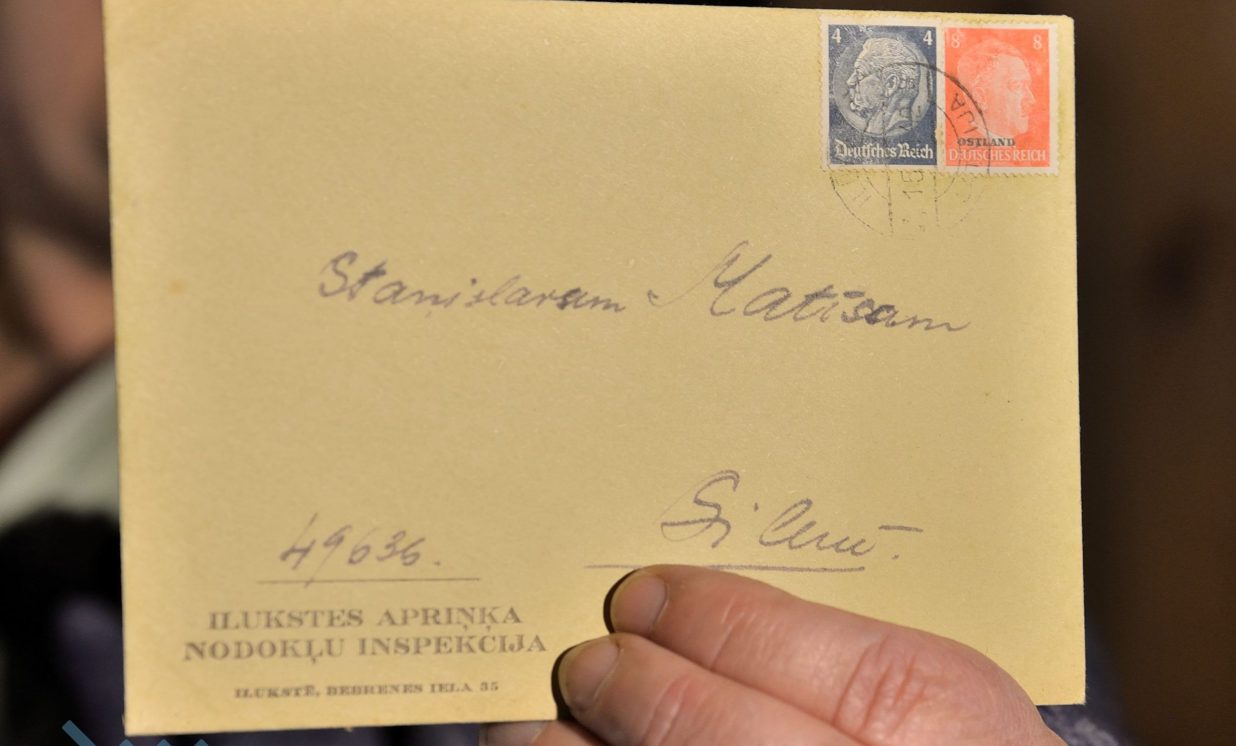 4 4
Deutsches Reich
8 8
OSTLAND
DEUTSCHES REICH
15
Staņislavam Matīsam
Silenē.
49636.
ILUKSTES APRIŅĶA
NODOKĻU INSPEKCIJA
ILUKSTĒ, BEBRENES IELA 35